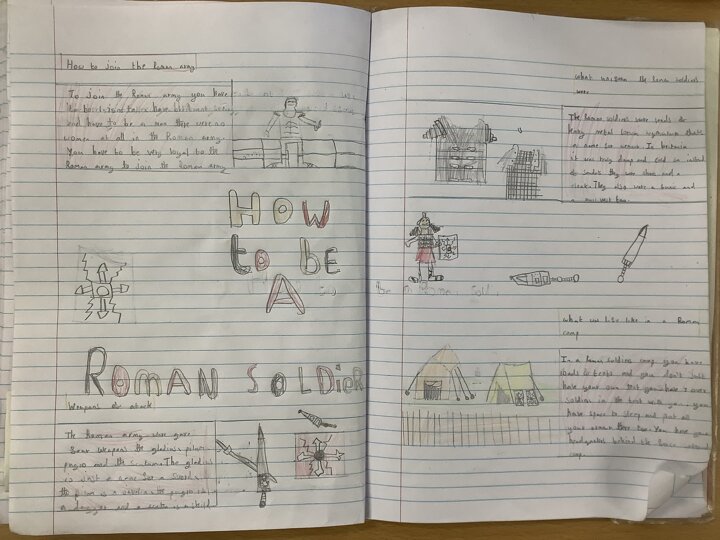 How to join the Roman army
To join the Roman army you have
to be
and have to be a man there were no
women at all in the Roman army.
You have to be very loyal to the
Roman army to join the Roman army
HOW
to bE
A
ROMAN SOLDieR
Weapons of attack
The Roman army were gave
four weapons the gladius pilum
pugio and the The gladius
is just a name for a sword
the pilum is a the pugio is
a dagger and a is a shield
what the Roman soldiers
wore
The Roman soldiers wore loads of
heavy metal
name for armour. In britania
it was truly damp and cold so instead
of sandals they wore shoes and a
cloak. They also wore a tunic and
a vest too.
what was life like in a Roman
camp
In a Roman soldiers camp you have
loads of tents and you don't just
have your own tent you have 7 over
soldiers in the tent with you. you
have space to sleep and put all
your armour there too. You have your
headquaters behind the fence
camp